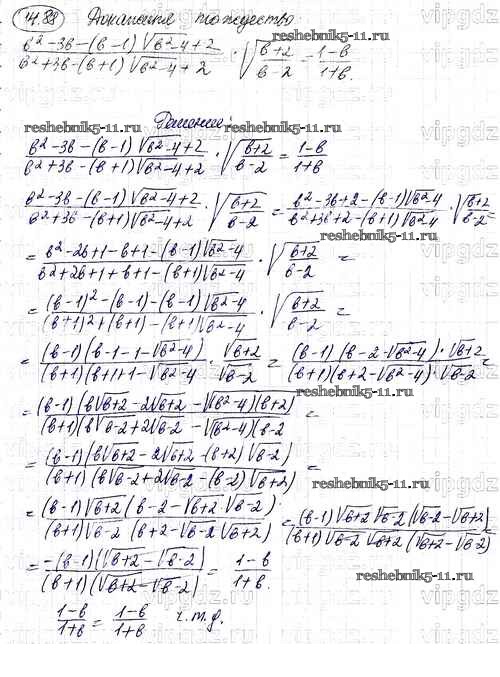 14.88 Докажите тождество
(b²-3b-(b-1)√(b²-4)+2)/(b²+3b-(b+1)√(b²-4)+2) · √((b+2)/(b-2)) = (1-b)/(1+b).
Решение:
reshebnik5-11.ru reshebnik5-11.ru
(b²-3b-(b-1)√(b²-4)+2)/(b²+3b-(b+1)√(b²-4)+2) · √((b+2)/(b-2)) = (1-b)/(1+b)
(b²-3b-(b-1)√(b²-4)+2)/(b²+3b-(b+1)√(b²-4)+2) · √((b+2)/(b-2)) = (b²-3b+2-(b-1)√(b²-4))/(b²+3b+2-(b+1)√(b²-4)) · √((b+2)/(b-2))
reshebnik5-11.ru
= (b²-2b+1-b+1-(b-1)√(b²-4))/(b²+2b+1+b+1-(b+1)√(b²-4)) · √((b+2)/(b-2)) =
= ((b-1)²-(b-1)-(b-1)√(b²-4))/((b+1)²+(b+1)-(b+1)√(b²-4)) · √((b+2)/(b-2)) =
= ((b-1)(b-1-1-√(b²-4)))/((b+1)(b+1+1-√(b²-4))) · √(b+2)/√(b-2) = ((b-1)(b-2-√(b²-4))·√(b+2))/((b+1)(b+2-√(b²-4))·√(b-2)) =
reshebnik5-11.ru
= ((b-1)(b√(b+2)-2√(b+2)-√((b²-4)(b+2))))/((b+1)(b√(b-2)+2√(b-2)-√((b²-4)(b-2)))) =
= ((b-1)(b√(b+2)-2√(b+2)-(b+2)√(b-2)))/((b+1)(b√(b-2)+2√(b-2)-(b-2)√(b+2))) =
reshebnik5-11.ru
= ((b-1)√(b+2)(b-2-√(b+2)·√(b-2)))/((b+1)√(b-2)(b+2-√(b-2)√(b+2))) = ((b-1)√(b+2)√(b-2)(√(b-2)-√(b+2)))/((b+1)√(b-2)√(b+2)(√(b+2)-√(b-2)))
= (-(b-1)(√(b+2)-√(b-2)))/((b+1)(√(b+2)-√(b-2))) = (1-b)/(1+b).
reshebnik5-11.ru
(1-b)/(1+b) = (1-b)/(1+b) ч.т.д.
reshebnik5-11.ru